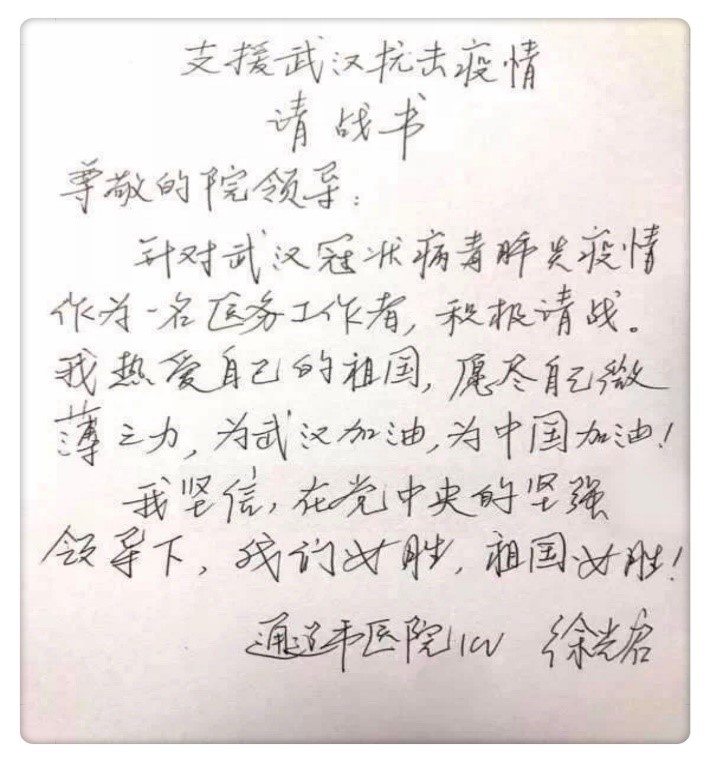 支援武汉抗击疫情
请战书
尊敬的院领导：
针对武汉冠状病毒肺炎疫情
作为一名医务工作者，积极请战。
我热爱自己的祖国，愿尽自己微
薄之力，为武汉加油，为中国加油！
我坚信，在党中央的坚强
领导下，我们必胜，祖国必胜！
通辽市医院ICU 徐光启